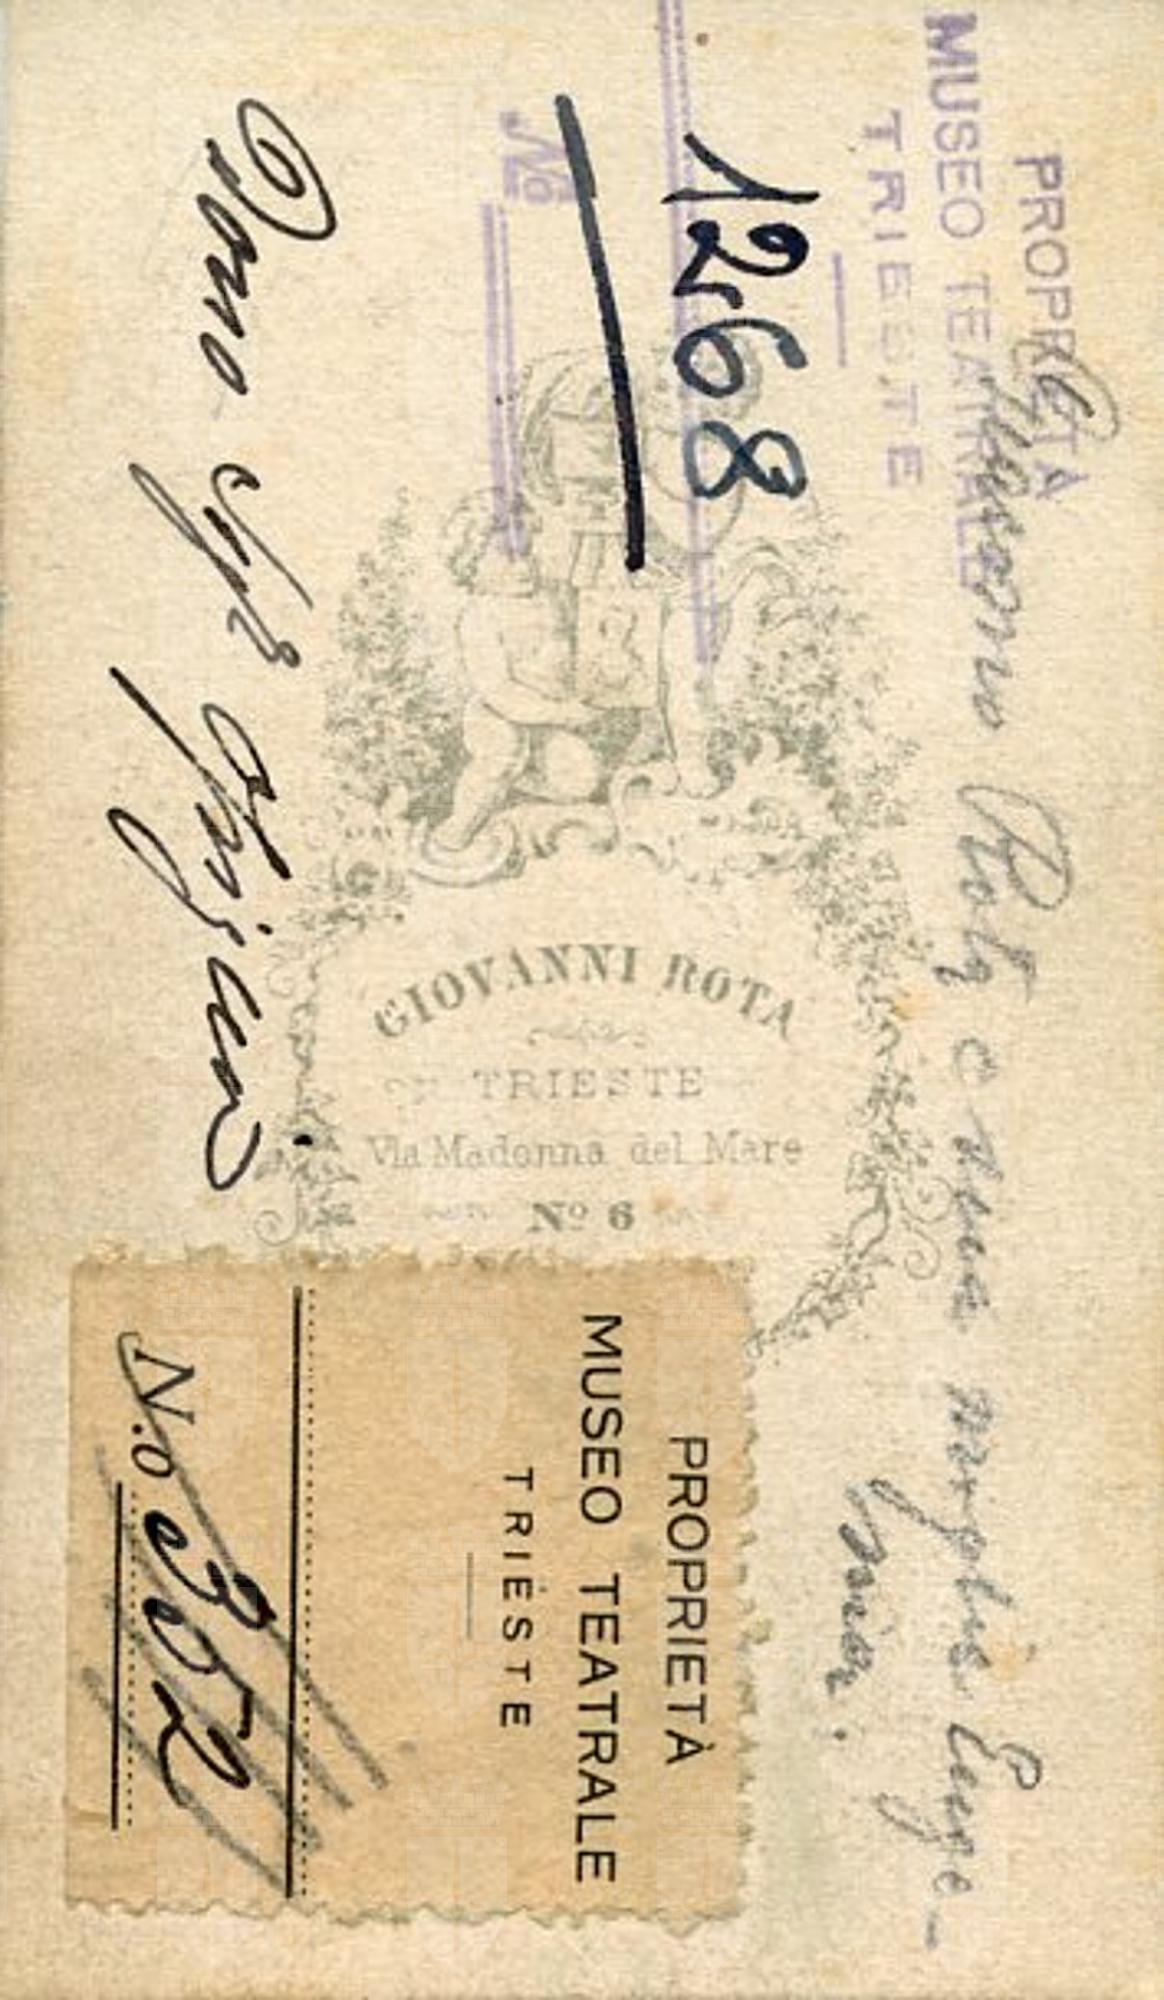 PROPRIETÀ
MUSEO TEATRALE
TRIESTE
Nº
1268
Giacomo Rota e sua moglie Euge-
nia.
Dono
GIOVANNI ROTA
TRIESTE
Via Madonna del Mare
Nº 6
PROPRIETÀ
MUSEO TEATRALE
TRIESTE
N.o 3052